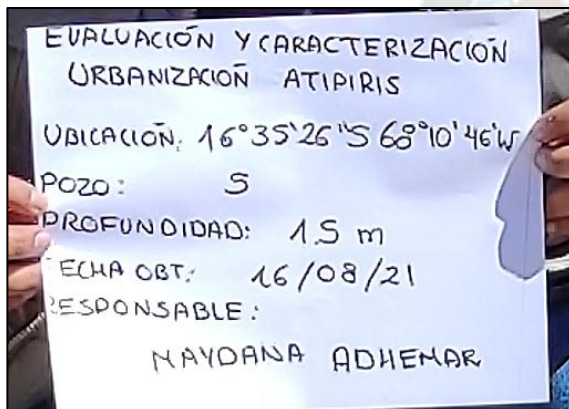 EVALUACIÓN Y CARACTERIZACIÓN
URBANIZACIÓN ATIPIRIS
UBICACIÓN: 16°35'26"S 68°10'46"W
POZO: 5
PROFUNDIDAD: 1.5 m
FECHA OBT: 16/08/21
RESPONSABLE:
MAYDANA ADHEMAR